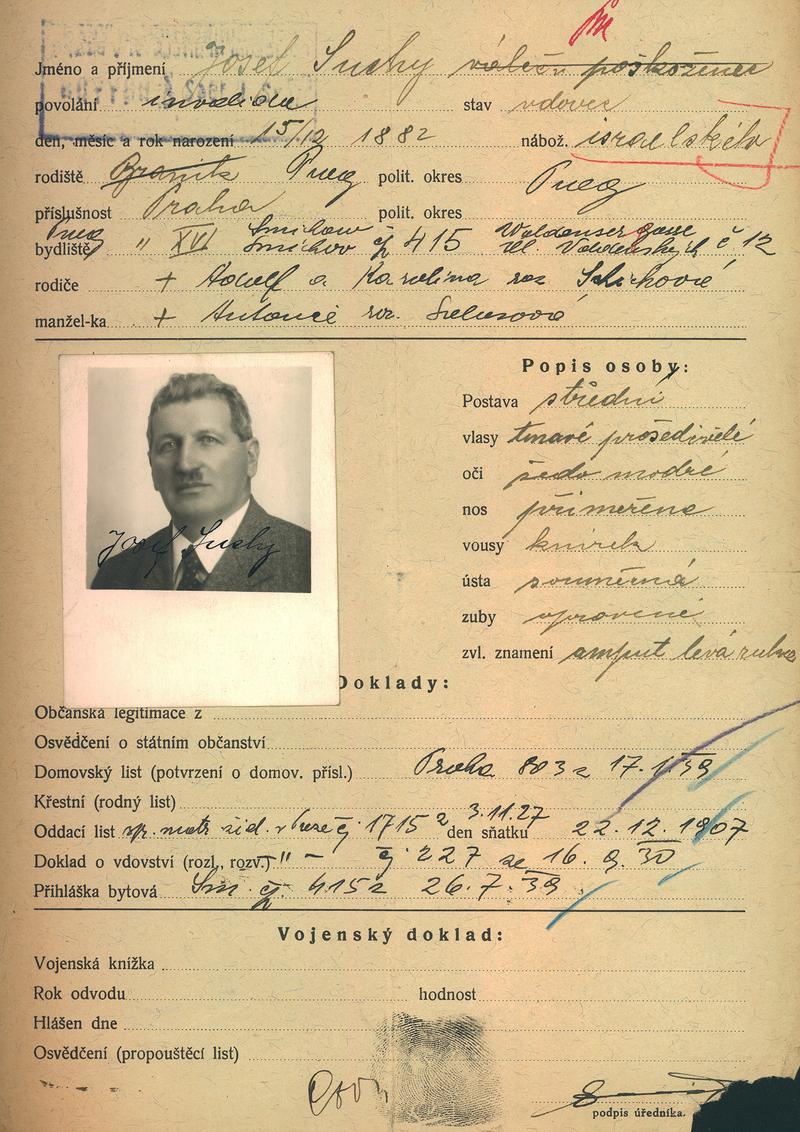 Jméno a příjmení Josef Suchy válečn poškozenec
povolání invalida stav vdovec
den, měsíc a rok narození 15/12 1882 nábož. israelského
rodiště Prag polit. okres Prag
příslušnost Praha polit. okres
Prag Smichow Waldenser gasse
bydliště " XVI Smíchov čp 415 ul. Valdenských č 12
rodiče + Adolf a Karolina roz
manžel-ka + Antonie roz.
Popis osoby:
Postava střední
vlasy tmavé prošedivělé
oči šedo modré
nos přiměřený
vousy knírek
ústa souměrná
zuby opravené
zvl. znamení amput levá ruka
Josef Suchy
Doklady:
Občanská legitimace z
Osvědčení o státním občanství
Domovský list (potvrzení o domov. přísl.) Praha 803 z 17.1.39
Křestní (rodný list)
Oddací list žid. v Praze čj 1715 z 3.11.27 den sňatku 22.12.1907
Doklad o vdovství (rozl., rozv.) " – čj 227 ze 16.9.30
Přihláška bytová Sm. čp. 415 z 26.7.39
Vojenský doklad:
Vojenská knížka
Rok odvodu hodnost
Hlášen dne
Osvědčení (propouštěcí list)
podpis úředníka.